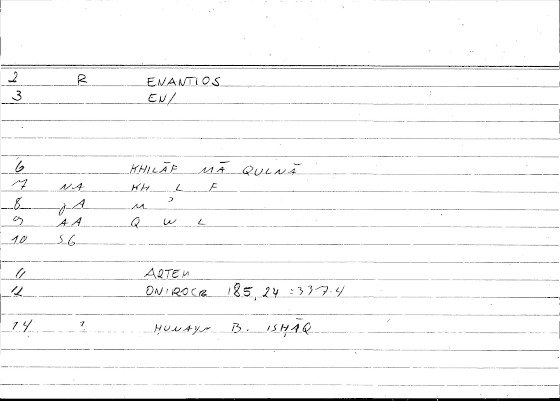 2 R ENANTIOS
3 EN/
6 KHILĀF MĀ QULNĀ
7 NA KH L F
8 JA M ʾ
9 AA Q W L
10 SG
11 ARTEM
12 ONIROCR 185,24 :337.4
14 1 HUNAYN B. ISḤĀQ